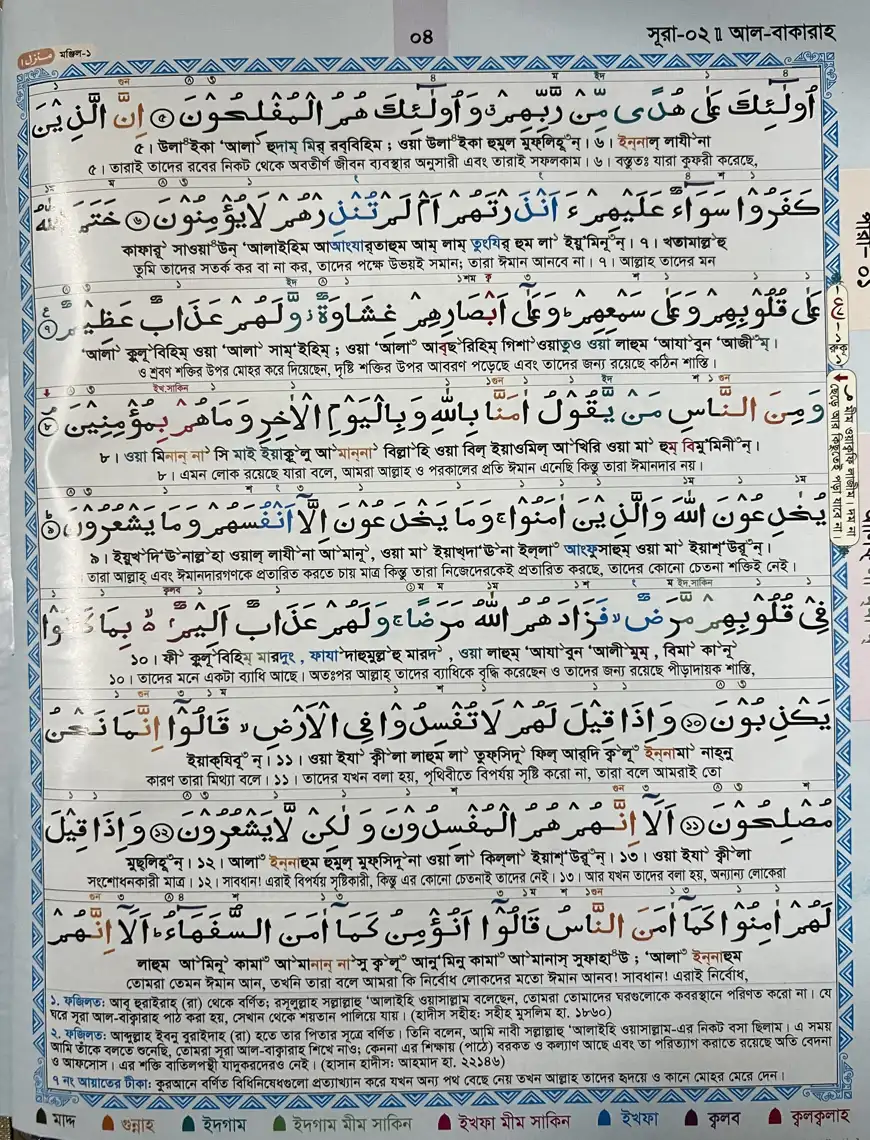 ০৪
সূরা-০২ ॥ আল-বাকারাহ
منزل۱ মঞ্জিল-১
اُولٰٓئِكَ عَلٰى هُدًى مِّنْ رَّبِّهِمْ ۙ وَاُولٰٓئِكَ هُمُ الْمُفْلِحُوْنَ ۝٥ اِنَّ الَّذِيْنَ
৫। উলা~ইকা 'আলা হুদাম্ মির্ রব্বিহিম্ ; ওয়া উলা~ইকা হুমুল্ মুফ্লিহূ'ন্। ৬। ইন্নাল্ লাযী'না
৫। তারাই তাদের রবের নিকট থেকে অবতীর্ণ জীবন ব্যবস্থার অনুসারী এবং তারাই সফলকাম। ৬। বস্তুতঃ যারা কুফরী করেছে,
كَفَرُوْا سَوَآءٌ عَلَيْهِمْ ءَاَنْذَرْتَهُمْ اَمْ لَمْ تُنْذِرْهُمْ لَا يُؤْمِنُوْنَ ۝٦ خَتَمَ اللّٰهُ
কাফারূ' সাওয়া~উন্ 'আলাইহিম্ আআংযার্তাহুম্ আম্ লাম্ তুংযির্ হুম্ লা' ইয়ু'মিনূ'ন্। ৭। খতামাল্ল'হু
তুমি তাদের সতর্ক কর বা না কর, তাদের পক্ষে উভয়ই সমান; তারা ঈমান আনবে না। ৭। আল্লাহ তাদের মন
عَلٰى قُلُوْبِهِمْ وَعَلٰى سَمْعِهِمْ ؕ وَعَلٰٓى اَبْصَارِهِمْ غِشَاوَةٌ ؗ وَّلَهُمْ عَذَابٌ عَظِيْمٌ ۝٧
'আলা' কুলূ'বিহিম্ ওয়া 'আলা' সাম্'ইহিম্ ; ওয়া 'আলা~ আব্ছ'রিহিম্ গিশা'ওয়াতুও ওয়া লাহুম্ 'আযা'বুন্ 'আজী'ম্।
ও শ্রবণ শক্তির উপর মোহর করে দিয়েছেন, দৃষ্টি শক্তির উপর আবরণ পড়েছে এবং তাদের জন্য রয়েছে কঠিন শাস্তি।
وَمِنَ النَّاسِ مَنْ يَّقُوْلُ اٰمَنَّا بِاللّٰهِ وَبِالْيَوْمِ الْاٰخِرِ وَمَا هُمْ بِمُؤْمِنِيْنَ ۝٨
৮। ওয়া মিনান্ না' সি মাই ইয়াকূ'লু আ'মান্না' বিল্লা'হি ওয়া বিল্ ইয়াওমিল্ আ'খিরি ওয়া মা' হুম্ বিমু'মিনী'ন্।
৮। এমন লোক রয়েছে যারা বলে, আমরা আল্লাহ ও পরকালের প্রতি ঈমান এনেছি কিন্তু তারা ঈমানদার নয়।
يُخٰدِعُوْنَ اللّٰهَ وَالَّذِيْنَ اٰمَنُوْا ۚ وَمَا يَخْدَعُوْنَ اِلَّآ اَنْفُسَهُمْ وَمَا يَشْعُرُوْنَ ۝٩
৯। ইয়ুখ'দি'উ'নাল্ল'হা ওয়াল্ লাযী'না আ'মানূ', ওয়া মা' ইয়াখ্দা'উ'না ইল্লা~ আংফুসাহুম্ ওয়া মা' ইয়াশ্'উরূ'ন্।
। তারা আল্লাহ এবং ঈমানদারগণকে প্রতারিত করতে চায় মাত্র কিন্তু তারা নিজেদেরকেই প্রতারিত করছে, তাদের কোনো চেতনা শক্তিই নেই।
فِيْ قُلُوْبِهِمْ مَّرَضٌ ۙ فَزَادَهُمُ اللّٰهُ مَرَضًا ۚ وَلَهُمْ عَذَابٌ اَلِيْمٌۢ ۙ بِمَا كَانُوْا
১০। ফী' কুলূ'বিহিম্ মারদুং, ফাযা'দাহুমুল্ল'হু মারদ', ওয়া লাহুম্ 'আযা'বুন্ 'আলী'মুম্, বিমা' কা'নূ'
১০। তাদের মনে একটা ব্যাধি আছে। অতঃপর আল্লাহ্ তাদের ব্যাধিকে বৃদ্ধি করেছেন ও তাদের জন্য রয়েছে পীড়াদায়ক শাস্তি,
يَكْذِبُوْنَ ۝١٠ وَاِذَا قِيْلَ لَهُمْ لَا تُفْسِدُوْا فِى الْاَرْضِ ۙ قَالُوْٓا اِنَّمَا نَحْنُ
ইয়াক্যিবূ'ন্। ১১। ওয়া ইযা' কী'লা লাহুম্ লা' তুফ্সিদূ' ফিল্ আর্দি ক'লূ~ ইন্নামা' নাহ্নু
কারণ তারা মিথ্যা বলে। ১১। তাদের যখন বলা হয়, পৃথিবীতে বিপর্যয় সৃষ্টি করো না, তারা বলে আমরাই তো
مُصْلِحُوْنَ ۝١١ اَلَآ اِنَّهُمْ هُمُ الْمُفْسِدُوْنَ وَلٰكِنْ لَّا يَشْعُرُوْنَ ۝١٢ وَاِذَا قِيْلَ
মুছ্লিহূ'ন্। ১২। আলা~ ইন্নাহুম্ হুমুল্ মুফ্সিদূ'না ওয়া লা' কিল্লা' ইয়াশ্'উরূ'ন্। ১৩। ওয়া ইযা' কী'লা
সংশোধনকারী মাত্র। ১২। সাবধান! এরাই বিপর্যয় সৃষ্টিকারী, কিন্তু এর কোনো চেতনাই তাদের নেই। ১৩। আর যখন তাদের বলা হয়, অন্যান্য লোকেরা
لَهُمْ اٰمِنُوْا كَمَآ اٰمَنَ النَّاسُ قَالُوْٓا اَنُؤْمِنُ كَمَآ اٰمَنَ السُّفَهَآءُ ؕ اَلَآ اِنَّهُمْ
লাহুম্ আ'মিনূ' কামা~ আ'মানান্ না'সু ক'লূ~ আনু'মিনু কামা~ আ'মানাস্ সুফাহা~উ ; 'আলা~ ইন্নাহুম্
তোমরা তেমন ঈমান আন, তখনি তারা বলে আমরা কি নির্বোধ লোকদের মতো ঈমান আনব! সাবধান! এরাই নির্বোধ,
১. ফজিলত: আবু হুরাইরাহ্ (রা) থেকে বর্ণিত; রসূলুল্লহ্ সল্লাল্লহু 'আলাইহি ওয়াসাল্লাম বলেছেন, তোমরা তোমাদের ঘরগুলোকে কবরস্থানে পরিণত করো না। যে
ঘরে সূরা আল-বাক্বারাহ্ পাঠ করা হয়, সেখান থেকে শয়তান পালিয়ে যায়। (হাদীস সহীহ: সহীহ মুসলিম হা. ১৮৬০)
২. ফজিলত: আব্দুল্লাহ ইবনু বুরাইদাহ্ (রা) হতে তার পিতার সূত্রে বর্ণিত। তিনি বলেন, আমি নাবী সল্লাল্লহু 'আলাইহি ওয়াসাল্লাম-এর নিকট বসা ছিলাম। এ সময়
আমি তাঁকে বলতে শুনেছি, তোমরা সূরা আল-বাক্বারাহ্ শিখে নাও; কেননা এর শিক্ষায় (পাঠে) বরকত ও কল্যাণ আছে এবং তা পরিত্যাগ করাতে রয়েছে অতি বেদনা
ও আফসোস। এর শক্তি বাতিলপন্থী যাদুকরদেরও নেই। (হাসান হাদীস: আহমাদ হা. ২২১৪৬)
৭ নং আয়াতের টীকা: কুরআনে বর্ণিত বিধিনিষেধগুলো প্রত্যাখ্যান করে যখন অন্য পথ বেছে নেয় তখন আল্লাহ তাদের হৃদয়ে ও কানে মোহর মেরে দেন।
মাদ্দ গুন্নাহ ইদগাম ইদগাম মীম সাকিন ইখফা মীম সাকিন ইখফা ক্বলব ক্বলক্বলাহ
পারা- ০১
রুকূ-১